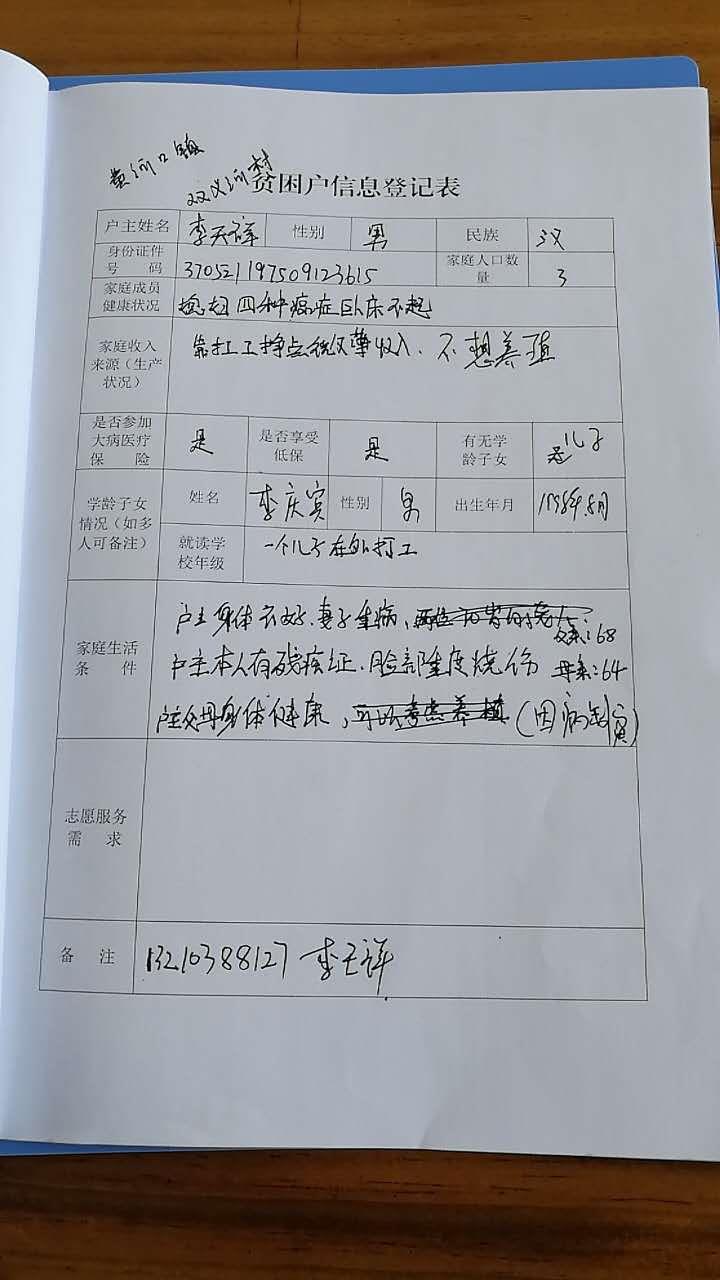 黄河口镇
双义河村
贫困户信息登记表
户主姓名 李天祥 性别 男 民族 汉
身份证件号码 370521197509123615 家庭人口数量 3
家庭成员健康状况 媳妇四种癌症卧床不起
家庭收入来源（生产状况） 靠打工挣点微薄收入．不想养殖
是否参加大病医疗保险 是 是否享受低保 是 有无学龄子女 儿子
学龄子女情况（如多人可备注） 姓名 李庆宾 性别 男 出生年月 1998年.8月
就读学校年级 一个儿子在外打工
家庭生活条件
户主身体不好、妻子重病、
父亲：68
户主本人有残疾证．脸部重度烧伤 母亲：64
户主父母身体健康，可以考虑养殖（因病致贫）
志愿服务需求
备注 13210388127 李天祥